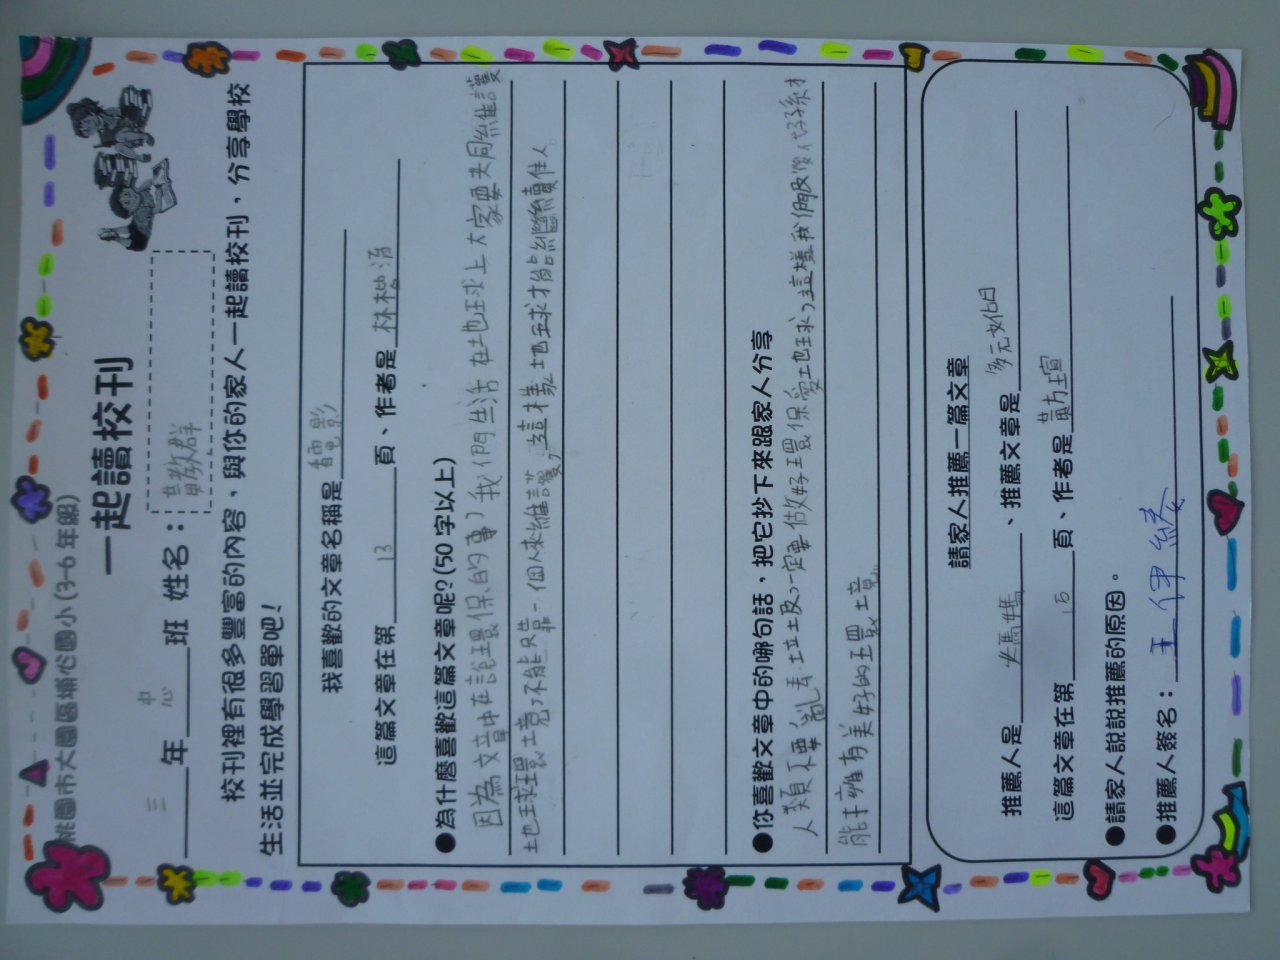 桃園市大園區埔心國小(3-6 年級)
一起讀校刊
三年忠班 姓名：黃教群
校刊裡有很多豐富的內容，與你的家人一起讀校刊，分享學校
生活並完成學習單吧！
我喜歡的文章名稱是 看電影
這篇文章在第 13 頁、作者是 林楷涵
●為什麼喜歡這篇文章呢?(50 字以上)
因為文章中在說環保的事，我們生活在地球上大家要共同維護
地球環境，不能只靠一個人來維護，這樣地球才能繼續住人。
●你喜歡文章中的哪句話，把它抄下來跟家人分享
人類不要亂丟垃圾，一定要做好環保愛地球，這樣我們以後，子孫才
能擁有美好的環境。
請家人推薦一篇文章
推薦人是 媽媽 、推薦文章是 多元文化日
這篇文章在第 15 頁、作者是 黃方瑄
●請家人說說推薦的原因。
●推薦人簽名： 王伊綾